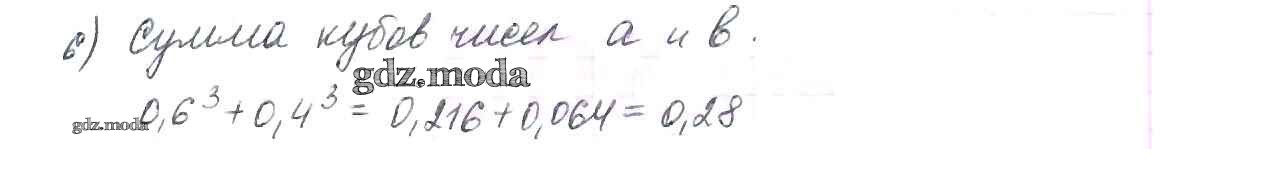 б) Сумма кубов чисел а и в.
gdz.moda
gdz.moda
0,6³ + 0,4³ = 0,216 + 0,064 = 0,28